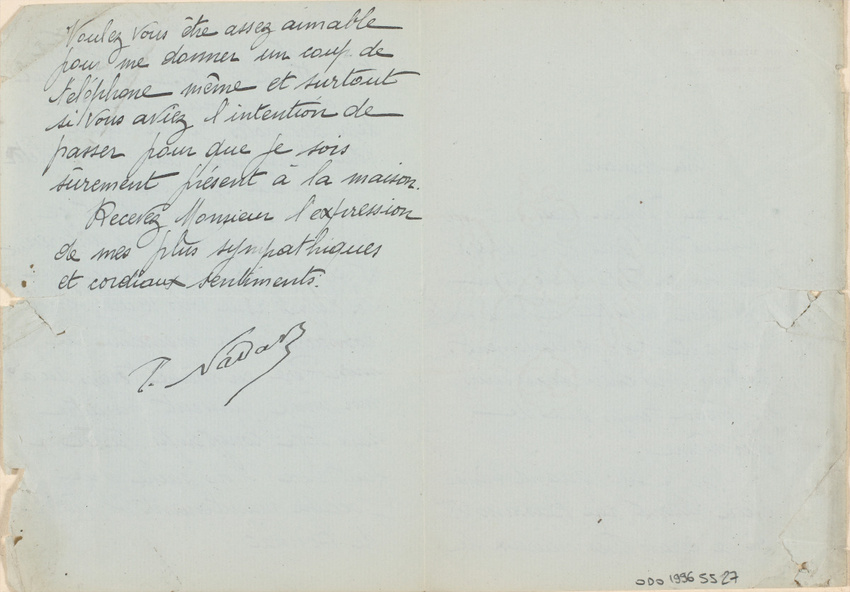 Voulez vous être assez aimable
pour me donner un coup de
téléphone même et surtout
si vous aviez l'intention de
passer pour que je sois
sûrement présent à la maison.
Recevez Monsieur l'expression
de mes plus sympathiques
et cordiaux sentiments.
P. Nadar
ODO 1996 55 27